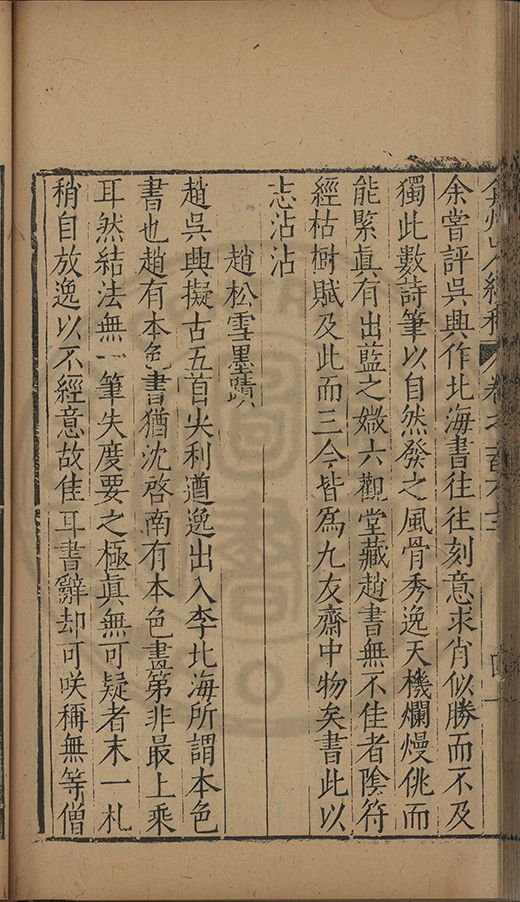 弇州山人續稿 卷之一百六十二 四
余嘗評吳興作北海書往往刻意求肖似勝而不及
獨此數詩筆以自然發之風骨秀逸天機爛熳佻而
能緊真有出藍之媺六觀堂藏趙書無不佳者陰符
經枯樹賦及此而三今皆為九友齋中物矣書此以
志沾沾
趙松雪墨蹟
趙吳興擬古五首尖利遒逸出入李北海所謂本色
書也趙有本色書猶沈啓南有本色畫第非最上乘
耳然結法無一筆失度要之極真無可疑者末一札
稍自放逸以不經意故佳耳書辭却可咲稱無等僧